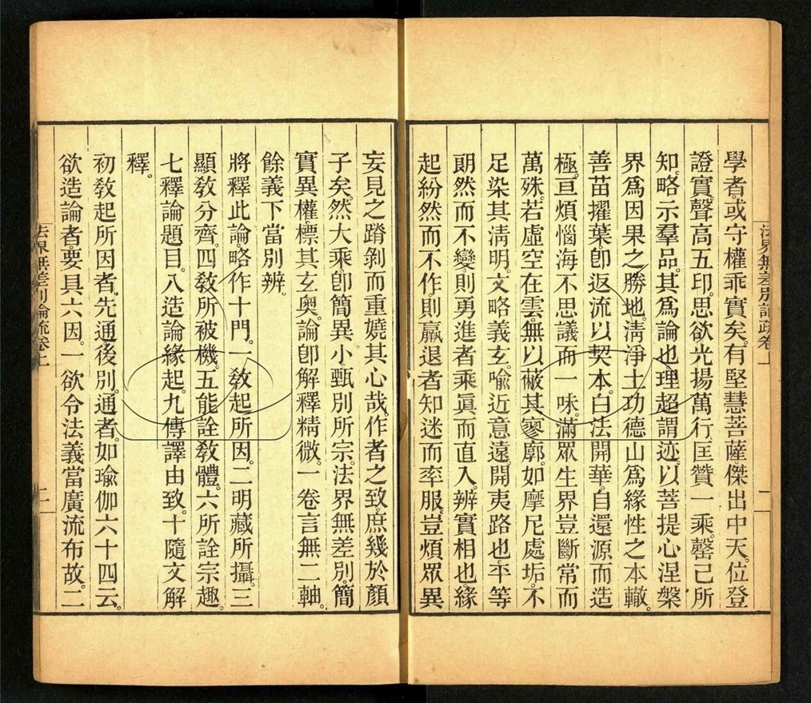 學者。或守權乖實矣。有堅慧菩薩傑出中天。位登
證實聲高五印。思欲光揚萬行。匡贊一乘。罄己所
知。略示羣品。其爲論也。理超謂迹。以菩提心涅槃
界爲因果之勝地。淸淨土功德山爲緣性之本轍。
善苗擢葉卽返流以契本。白法開華。自還源而造
極。亘煩惱海不思議而一味。滿眾生界豈斷常而
萬殊。若虛空在雲。無以蔽其寥廓。如摩尼處垢。不
足染其淸明。文略義玄。喻近意遠。開夷路也。平等
朗然而不變。則勇進者乘眞而直入。辨實相也。緣
起紛然而不作。則羸退者知迷而率服。豈煩眾異
妄見之踳剝而重嬈其心哉。作者之致。庶幾於顏
子矣。然大乘卽簡異小。甄別所宗。法界無差別。簡
實異權。標其玄奧。論卽解釋精微。一卷言無二軸。
餘義下當別辨。
將釋此論。略作十門。一敎起所因。二明藏所攝。三
顯敎分齊。四敎所被機。五能詮敎體。六所詮宗趣。
七釋論題目。八造論緣起。九傳譯由致。十隨文解
釋。
初敎起所因者。先通後別。通者。如瑜伽六十四云。
欲造論者。要具六因。一欲令法義當廣流布故。二
法界無差別論疏卷上
二